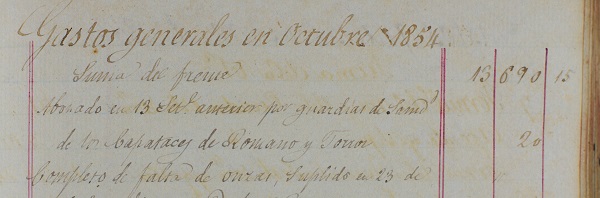 Gastos generales en Octubre 1854.
Suma del frente 13 690 15
Abonado en 13 Set.e anterior por guardias de Sanid.d
de los Capataces de Romano y Torror 20
Completo de falta de onzas, suplido en 23 de